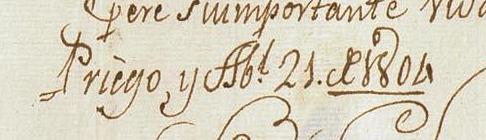 pere su importante vida
Priego, y Ab.l 21. de 1804